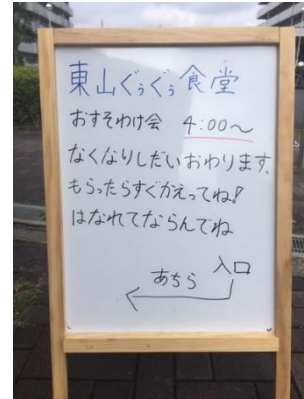 東山ぐぅぐぅ食堂
おすそわけ会 4:00〜
なくなりしだいおわります。
もらったらすぐかえってね!
はなれてならんでね
入口
あちら